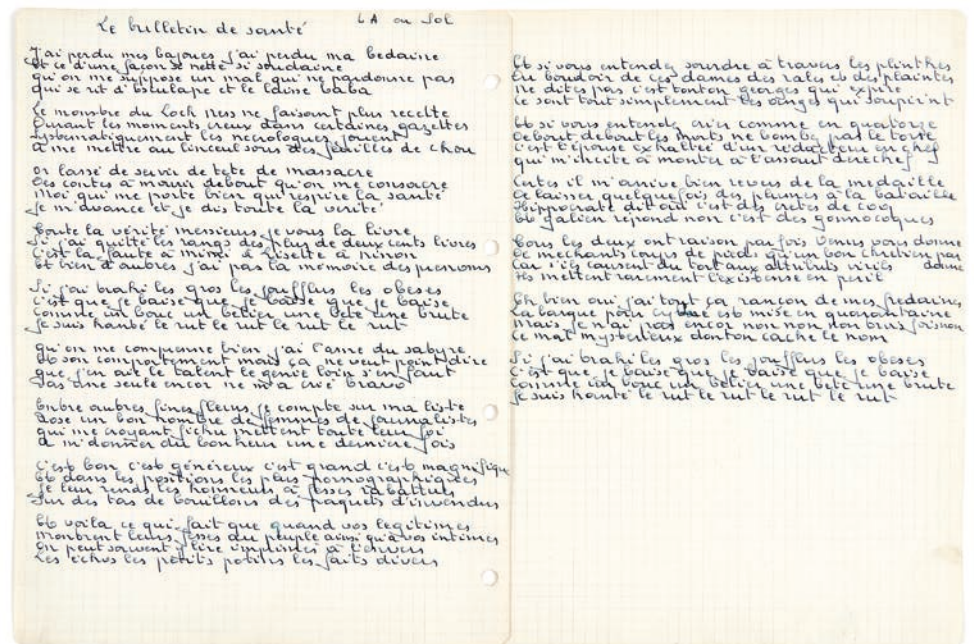 Le bulletin de santé
LA ou Sol
J'ai perdu mes bajoues j'ai perdu ma bedaine
Et ce d'une façon si nette si soudaine
qu'on me suppose un mal qui ne pardonne pas
qui se rit d'Esculape et le laisse baba
Le monstre du Loch Ness ne faisant plus recette
Durant les moments creux dans certaines gazettes
Systematiquement les necrologues jouent
à me mettre au linceul sous des feuilles de chou
or lassé de servir de tete de massacre
Des contes à mourir debout qu'on me consacre
Moi qui me porte bien qui respire la santé
Je m'avance et je dis toute la verité
Toute la vérité messieurs je vous la livre
Si j'ai quitté les rangs des plus de deux cents livres
C'est la faute à mimi à Lisette à ninon
Et bien d'autres j'ai pas la mémoire des prenoms
Si j'ai trahi les gros les joufflus les obeses
C'est que je baise que je baise que je baise
Comme un bouc un belier une bete une brute
Je suis hanté le rut le rut le rut le rut
qu'on me comprenne bien j'ai l'ame du satyre
Et son comportement mais ça ne veut point dire
que j'en ait le talent le genie loin s'en faut
Pas une seule encor ne m'a crié bravo
Entre autres fines fleurs je compte sur ma liste
Rose un bon nombre de femmes de journalistes
qui me croyant fichu mettent toute leur foi
à m'donner du bonheur une derniere fois
C'est bon c'est généreux c'est grand c'est magnifique
Et dans les positions les plus pornographiques
Je leur rends les honneurs à fesses rabattues
Sur des tas de bouillons des paquets d'invendus
Et voila ce qui fait que quand vos legitimes
Montrent leurs fesses au peuple ainsi qu'à vos intimes
On peut souvent y lire imprimés à l'envers
Les echos les petits potins les faits divers
Et si vous entendez sourdre à travers les plinthes
Du boudoir de ces dames des rales et des plaintes
Ne dites pas c'est tonton georges qui expire
Ce sont tout simplement les anges qui soupirent
Et si vous entendez crier comme en quatorze
Debout debout les morts ne bombez pas le torse
C'est l'épouse exhaltée d'un redacteur en chef
qui m'incite à monter à l'assaut derechef
Certes il m'arrive bien revers de la medaille
De laisser quelquefois des plumes à la bataille
Hippocrate dit oui c'est des cretes de coq
Et Galien répond non c'est des gonnocoques
Tous les deux ont raison parfois Venus vous donne
De mechants coups de pieds qu'un bon chretien pardonne
Car s'ils causent du tort aux attributs virils
Ils mettent rarement l'existense en peril
Eh bien oui j'ai tout ça rançon de mes fredaines
La barque pour cythere est mise en quarantaine
Mais je n'ai pas encor non non non trois fois non
Ce mal mysterieux dont on cache le nom
Si j'ai trahi les gros les joufflus les obeses
C'est que je baise que je baise que je baise
Comme un bouc un belier une bete une brute
Je suis hanté le rut le rut le rut le rut